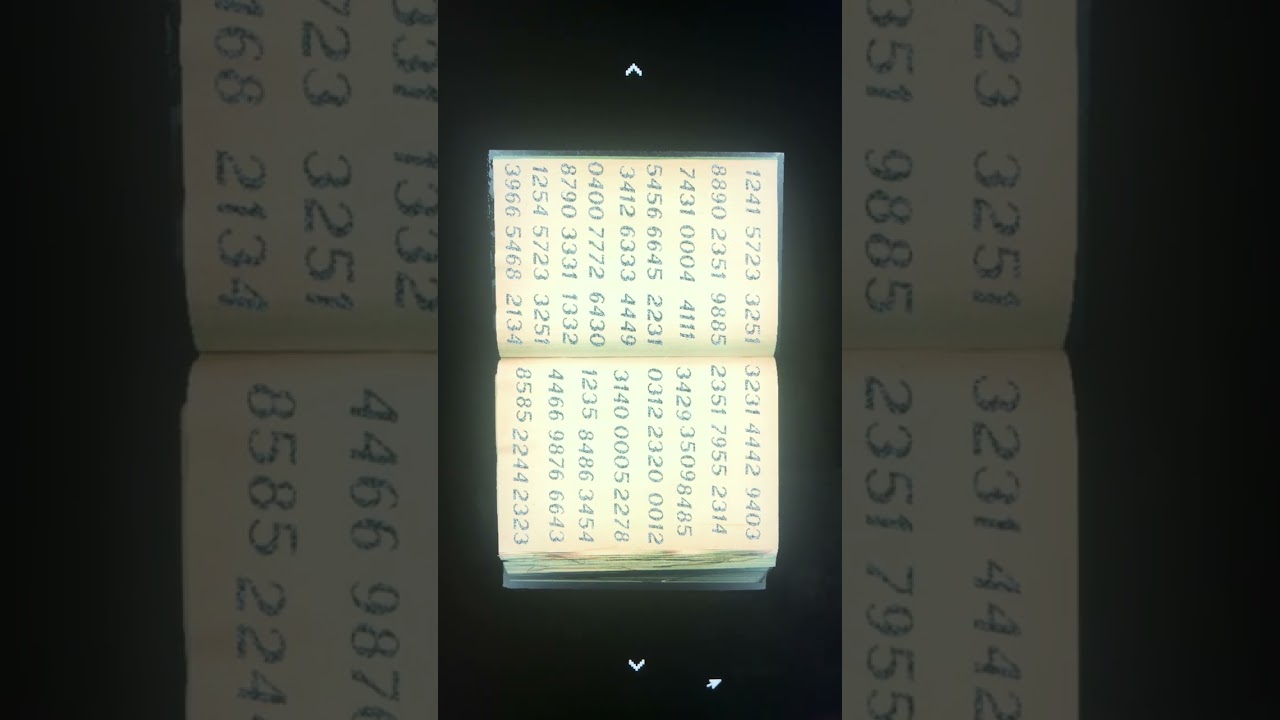 1241 5723 3251
8890 2351 9885
7431 0004 4111
5456 6645 2231
3412 6333 4449
0400 7772 6430
8790 3331 1332
1254 5723 3251
3966 5468 2134
3231 4442 9403
2351 7955 2314
3429 3509 8485
0312 2320 0012
3140 0005 2278
1235 8486 3454
4466 9876 6643
8585 2244 2323